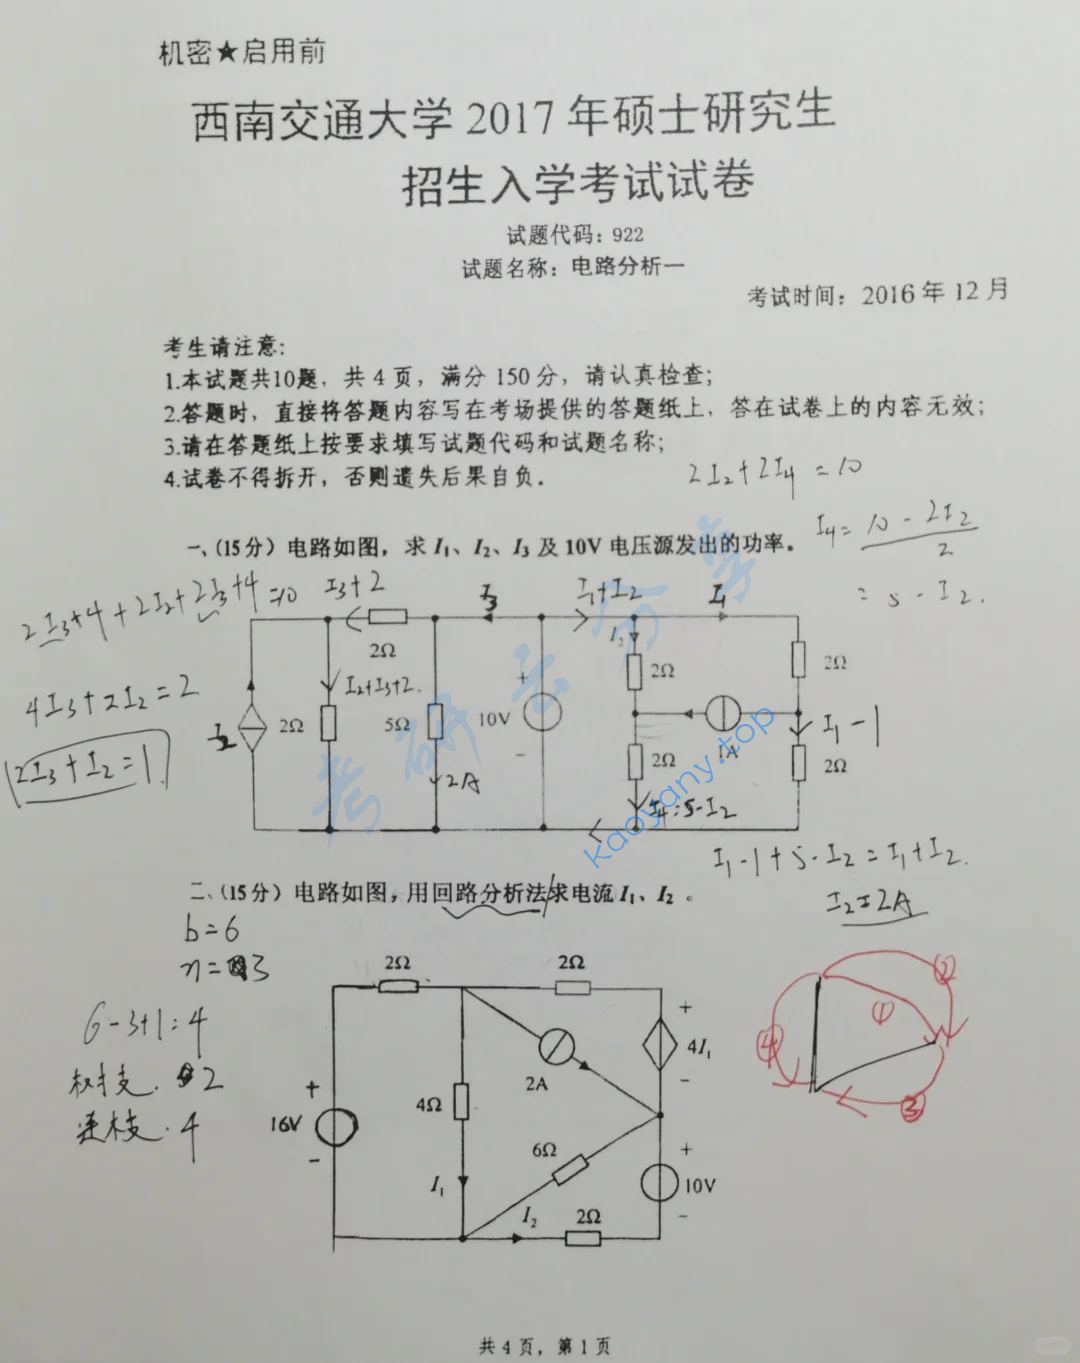 机密★启用前
西南交通大学 2017 年硕士研究生
招生入学考试试卷
试题代码：922
试题名称：电路分析一
考试时间：2016 年 12 月
考生请注意：
1.本试题共10题，共 4 页，满分 150 分，请认真检查；
2.答题时，直接将答题内容写在考场提供的答题纸上，答在试卷上的内容无效；
3.请在答题纸上按要求填写试题代码和试题名称；
4.试卷不得拆开，否则遗失后果自负．
2I₂+2I₄=10
I₄= (10-2I₂)/2
= 5-I₂.
一、（15分）电路如图，求 I₁、I₂、I₃ 及 10V 电压源发出的功率。
2I₃+4+2I₂+2I₃+4=10
4I₃+2I₂=2
2I₃+I₂=1
I₃+2
I₃
I₁+I₂
I₁
2Ω
I₂
2Ω
2Ω
I₂+I₃+2.
I₂
2Ω
5Ω
+
10V
-
1A
I₁-1
2Ω
2Ω
2A
I₄=5-I₂
I₁-1+5-I₂=I₁+I₂.
I₂=2A
二、（15分）电路如图，用回路分析法求电流 I₁、I₂ 。
b=6
n=3
6-3+1=4
树支. 2
连枝. 4
2Ω
2Ω
+
4I₁
-
2A
4Ω
+
16V
-
6Ω
+
10V
-
I₁
I₂
2Ω
①
②
③
④
考研云分享
kaoyany.top
共 4 页，第 1 页